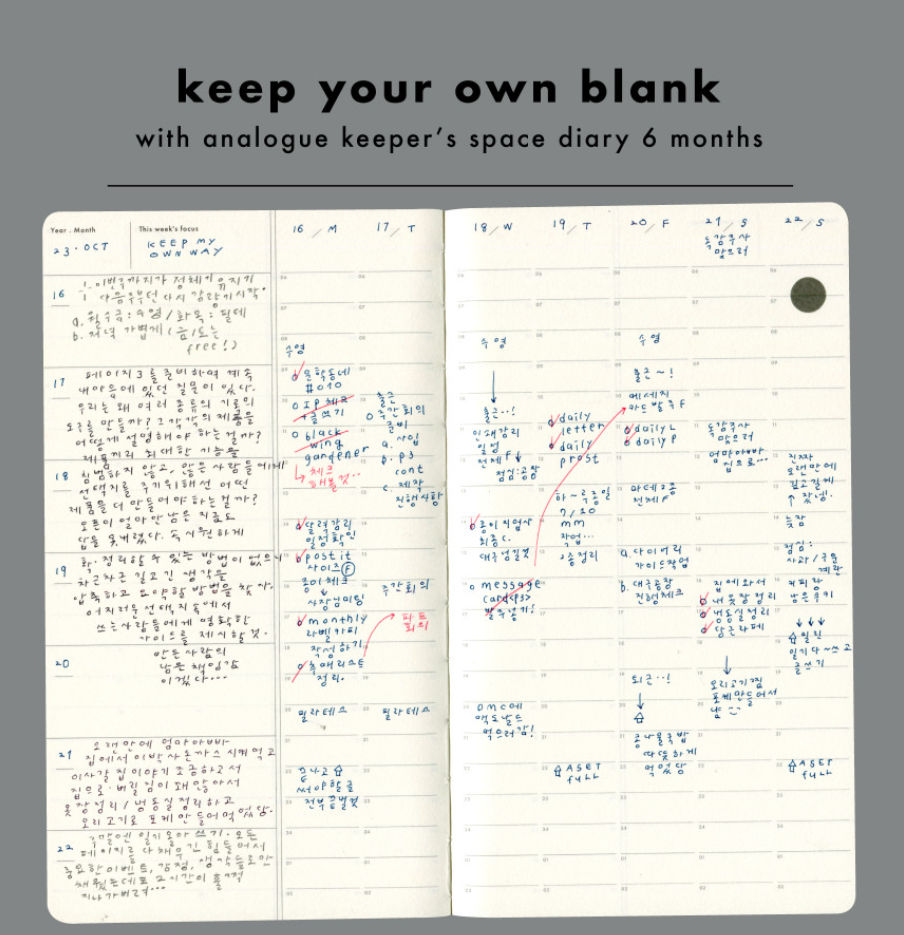 keep your own blank
with analogue keeper's space diary 6 months
Year . Month
This week's focus
23 · OCT
KEEP MY
OWN WAY
16
이번주까지가 정체기 유지기
다음주부턴 다시 감량기시작.
a. 월수금 : 수영 / 화목 : 필테
b. 저녁 가볍게 (금/토는
free!)
17
페이지 3를 준비하며 계속
내 마음에 있던 질문이 있다.
우리는 왜 여러 종류의 기록의
도구를 만들까? 그 각각의 제품을
어떻게 설명해야 하는걸까?
제품끼리 최대한 기능을
18
침범하지 않고, 많은 사람들에게
선택지를 주기위해선 어떤
제품을 더 만들어야 하는걸까?
오픈이 얼마 안남은 지금도
답을 못내렸다. 속 시원하게
19
정리할 수 있는 방법이 없으니
차근차근 깊고 긴 생각을
압축하고 요약할 방법을 찾자.
어지러운 선택지속에서
쓰는사람들에게 명확한
가이드를 제시할것.
20
만든 사람의
남은 책임감
이겠다....
21
오랜만에 엄마아빠랑
집에서 이박사 돈까스 시켜먹고
이사갈 집이야기 조금하고서
집으로. 버릴짐이 꽤 많아서
옷장정리 / 냉동실정리하고
오리고기로 포케만들어먹었당.
22
주말엔 일기 몰아쓰기. 모든
페이지를 다 채우긴 힘들어서
중요한 이벤트, 감정, 생각들로만
채웠는데도 2시간이 훌쩍
지나가버려...
16 / M
수영
문학동네
#010
IP 체크
+글쓰기
black
wing
gardener
체크
해볼것..
달력감리
일정확인
post it
사이즈 F
종이체크
사장님미팅
monthly
라벨가피
작성하기
추매리스트
정리.
필라테스
쓰나고
써야할글
전부 털것
17 / T
출근
주간회의
준비
a. 사입
b. p3
cont
c. 제작
진행시황
주간회의
파트
회의
필라테스
18 / W
수영
출근..!
인쇄감리
일정
언제 F
점심:공장
종이 직업사
최종 C.
대구일것
message
card<p3>
발주넘기!
DMC에
맥도날드
먹으러감!
19 / T
daily
letter
daily
prost
하-루종일
7/20
mm
작업...
2층정리
ASSET
full
20 / F
수영
출근~!
메세지
카드발주F
daily L
daily P
마테2종
전체F
a. 다이어리
가이드작업
b. 대구공장
진행체크
퇴근..!
콩나물국밥
따뜻하게
먹었당
21 / S
독감주사
맞으러
독감주사
맞으러
엄마아빠
집으로...
집에와서
내옷장정리
냉동실정리
당근라페
오리고기찜
포케만들어서
냠
22 / S
진짜
오랜만에
길고길게
잤넹.
늦잠
점심:
사과 / 구운
계란
커피랑
남은쿠키
밀린
일기다~쓰고
글쓰기
ASSET
full